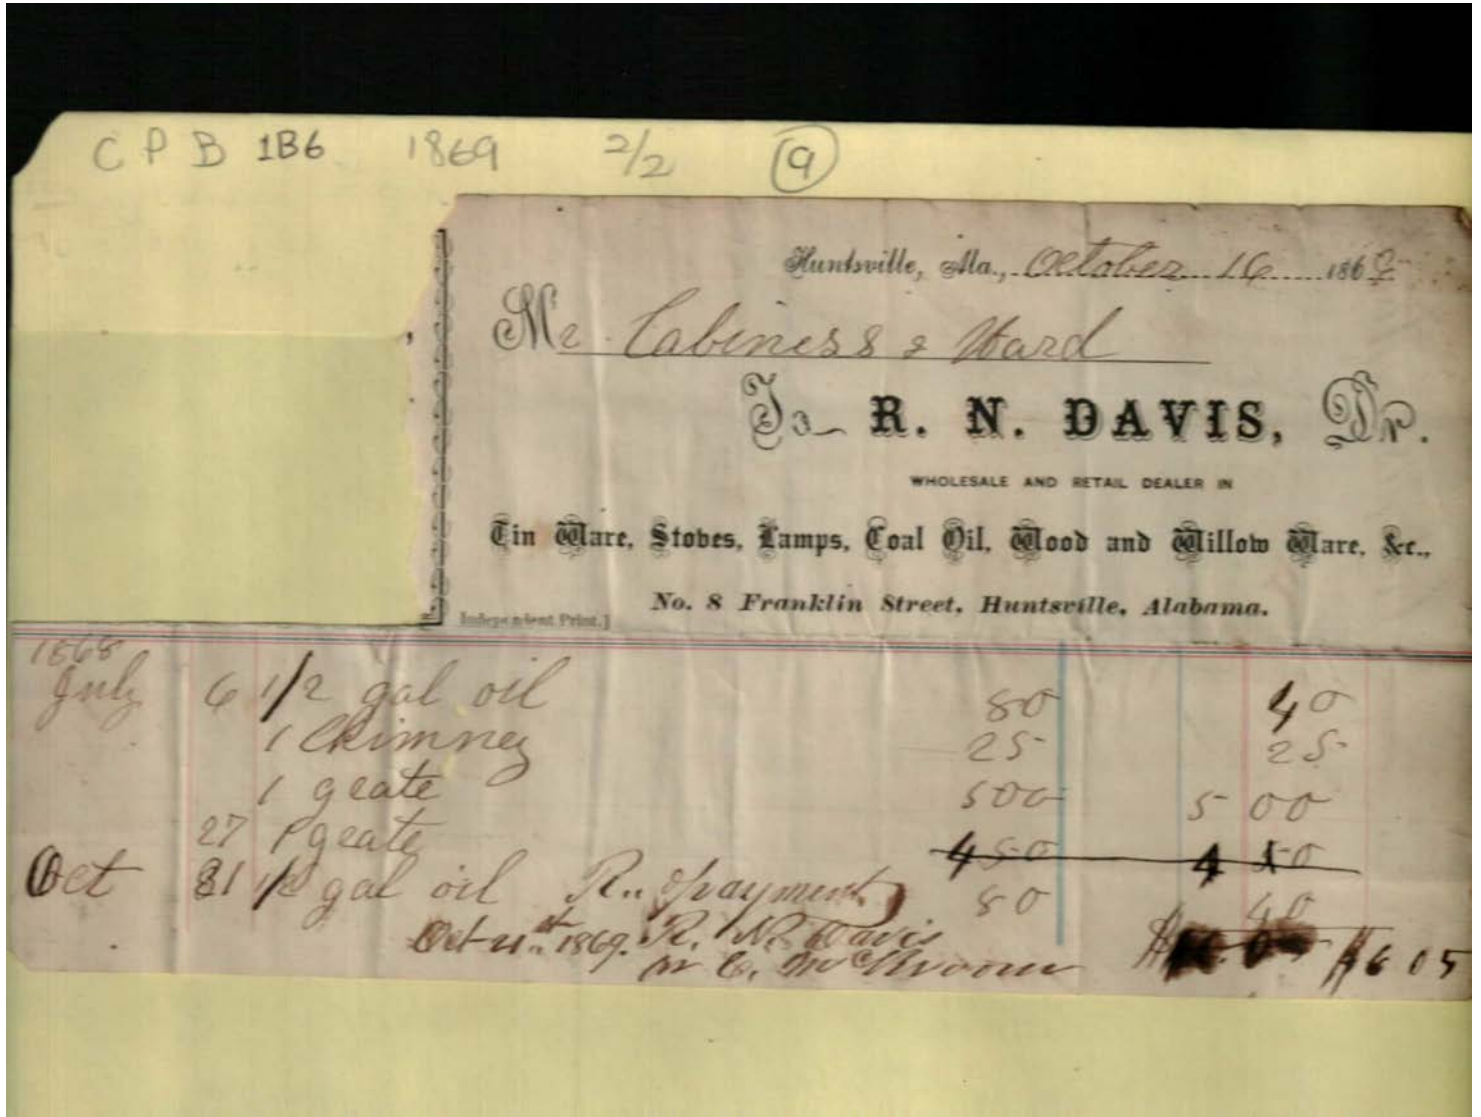 C P B 1B6 1869 2/2 9
Huntsville, Ala., October 16 1869
Mr Cabiness & Ward
To R. N. DAVIS, Dr.
WHOLESALE AND RETAIL DEALER IN
Tin Ware, Stoves, Lamps, Coal Oil, Wood and Willow Ware, &c.,
No. 8 Franklin Street, Huntsville, Alabama.
Independent Print.]
1868
July 6 1/2 gal oil 80 40
1 Chimney 25 25
1 grate 500 5 00
27 1 grate 450 4 50
Oct 31 1/2 gal oil 80 40
Rec payment
Oct 21st 1869. R. N. Davis
$6 05